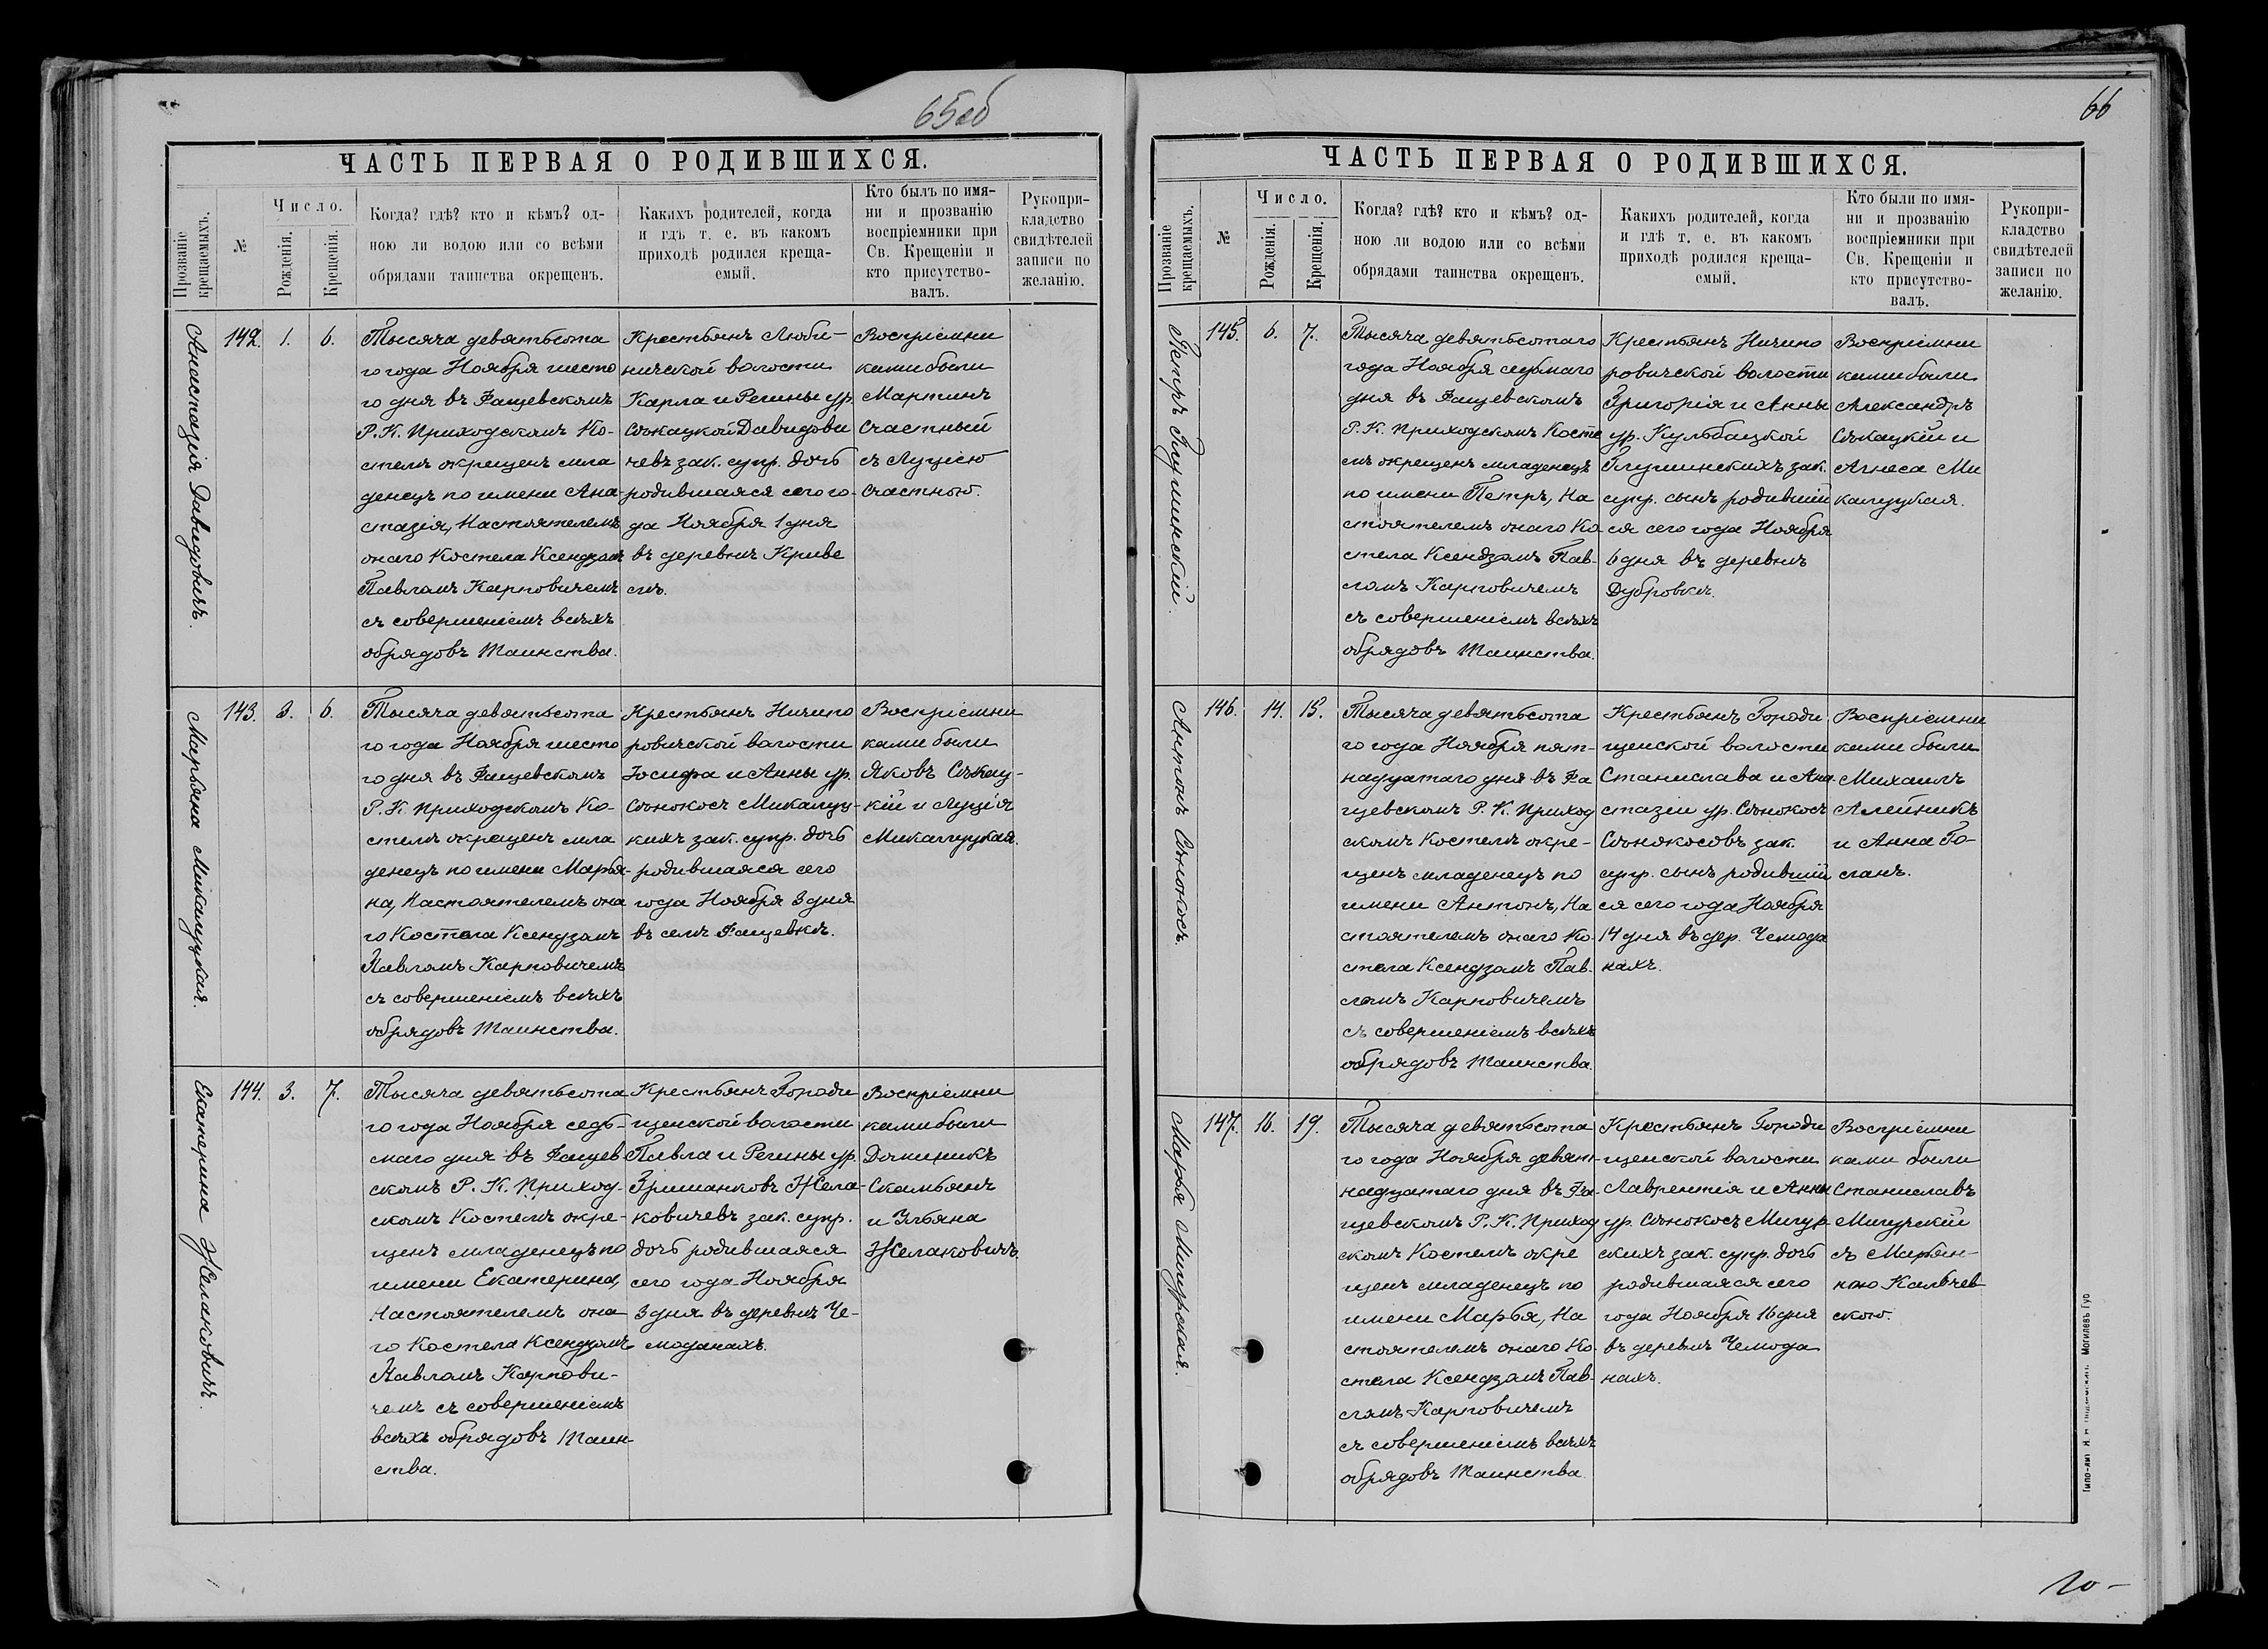 65 об
ЧАСТЬ ПЕРВАЯ О РОДИВШИХСЯ.
Прозваніе
крещаемыхъ.
№
Число.
Рожденія.
Крещенія.
Когда? гдѣ? кто и кѣмъ? од-
ною ли водою или со всѣми
обрядами таинства окрещенъ.
Какихъ родителей, когда
и гдѣ т. е. въ какомъ
приходѣ родился креща-
емый.
Кто былъ по имя-
ни и прозванію
воспріемники при
Св. Крещеніи и
кто присутство-
валъ.
Рукопри-
кладство
свидѣтелей
записи по
желанію.
Анастазія Давидовичъ.
142.
1.
6.
Тысяча девятьсота
го года Ноября шесто
го дня въ Фащевскомъ
Р. К. Приходскомъ Ко-
стелѣ окрещенъ мла
денецъ по имени Ана-
стазія, Настоятелемъ
онаго Костела Ксендзомъ
Павломъ Карповичемъ
съ совершеніемъ всѣхъ
обрядовъ Таинства.
Крестьянъ Люби-
ничской волости
Карла и Регины ур.
Сѣкацкой Давидови
чевъ зак. супр. дочь
родившаяся сего го-
да Ноября 1 дня
въ деревнѣ Криве
лѣ.
Воспріемни
ками были
Мартинъ
Счастный
съ Луціею
Счастною.
Марьяна Микалуцкая.
143.
3.
6.
Тысяча девятьсота
го года Ноября шесто
го дня въ Фащевскомъ
Р. К. Приходскомъ Ко-
стелѣ окрещенъ мла
денецъ по имени Марья-
на, Настоятелемъ она
го Костела Ксендзомъ
Павломъ Карповичемъ
съ совершеніемъ всѣхъ
обрядовъ Таинства.
Крестьянъ Ничипо
ровичской волости
Іосифа и Анны ур.
Сѣнокосъ Микалуц-
кихъ зак. супр. дочь
родившаяся сего
года Ноября 3 дня
въ селѣ Фащевкѣ.
Воспріемни
ками были
Яковъ Сѣкац-
кій и Луція
Микалуцкая.
Екатерина Желаковичъ.
144.
3.
7.
Тысяча девятьсота
го года Ноября седь-
маго дня въ Фащев
скомъ Р. К. Приход-
скомъ Костелѣ окре-
щенъ младенецъ по
имени Екатерина,
Настоятелемъ она
го Костела Ксендзомъ
Павломъ Карпови-
чемъ съ совершеніемъ
всѣхъ обрядовъ Таин
ства.
Крестьянъ Городи
щенской волости
Павла и Регины ур.
Гришанковъ Жела-
ковичевъ зак. супр.
дочь родившаяся
сего года Ноября
3 дня въ деревнѣ Че-
моданахъ.
Воспріемни
ками были
Доминикъ
Скамьянъ
и Ульяна
Желаковичъ.
66
ЧАСТЬ ПЕРВАЯ О РОДИВШИХСЯ.
Прозваніе
крещаемыхъ.
№
Число.
Рожденія.
Крещенія.
Когда? гдѣ? кто и кѣмъ? од-
ною ли водою или со всѣми
обрядами таинства окрещенъ.
Какихъ родителей, когда
и гдѣ т. е. въ какомъ
приходѣ родился креща-
емый.
Кто были по имя-
ни и прозванію
воспріемники при
Св. Крещеніи и
кто присутство-
валъ.
Рукопри-
кладство
свидѣтелей
записи по
желанію.
Петръ Глушинскій.
145.
6.
7.
Тысяча девятьсотаго
года Ноября седьмаго
дня въ Фащевскомъ
Р. К. Приходскомъ Косте
лѣ окрещенъ младенецъ
по имени Петръ, На
стоятелемъ онаго Ко
стела Ксендзомъ Пав-
ломъ Карповичемъ
съ совершеніемъ всѣхъ
обрядовъ Таинства.
Крестьянъ Ничипо
ровичской волости
Григорія и Анны
ур. Кульбацкой
Глушинскихъ зак.
супр. сынъ родившій
ся сего года Ноября
6 дня въ деревнѣ
Дубровкѣ.
Воспріемни
ками были
Александръ
Сѣкацкій и
Агнеса Ми
калуцкая.
Антонъ Сѣнокосъ.
146.
14.
15.
Тысяча девятьсота
го года Ноября пят-
надцатаго дня въ Фа
щевскомъ Р. К. Приход
скомъ Костелѣ окре-
щенъ младенецъ по
имени Антонъ, На
стоятелемъ онаго Ко-
стела Ксендзомъ Пав-
ломъ Карповичемъ
съ совершеніемъ всѣхъ
обрядовъ Таинства.
Крестьянъ Городи
щенской волости
Станислава и Ана-
стазіи ур. Сѣнокосъ
Сѣнокосовъ зак.
супр. сынъ родившій
ся сего года Ноября
14 дня въ дер. Чемода
нахъ.
Воспріемни
ками были
Михаилъ
Алейникъ
и Анна Го-
ланъ.
Марья Мигурская.
147.
16.
19.
Тысяча девятьсота
го года Ноября девят-
надцатаго дня въ Фа-
щевскомъ Р. К. Приход
скомъ Костелѣ окре
щенъ младенецъ по
имени Марья, На
стоятелемъ онаго Ко-
стела Ксендзомъ Пав-
ломъ Карповичемъ
съ совершеніемъ всѣхъ
обрядовъ Таинства
Крестьянъ Городи
щенской волости
Лаврентія и Анны
ур. Сѣнокосъ Мигур-
скихъ зак. супр. дочь
родившаяся сего
года Ноября 16 дня
въ деревнѣ Чемода
нахъ.
Воспріемни
ками были
Станиславъ
Мигурскій
съ Марьян-
ною Кальчев
скою.
Могилевъ Губ